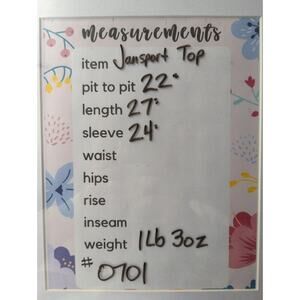 measurements
item Jansport Top
pit to pit 22"
length 27"
sleeve 24"
waist
hips
rise
inseam
weight 1Lb 3oz
# 0701